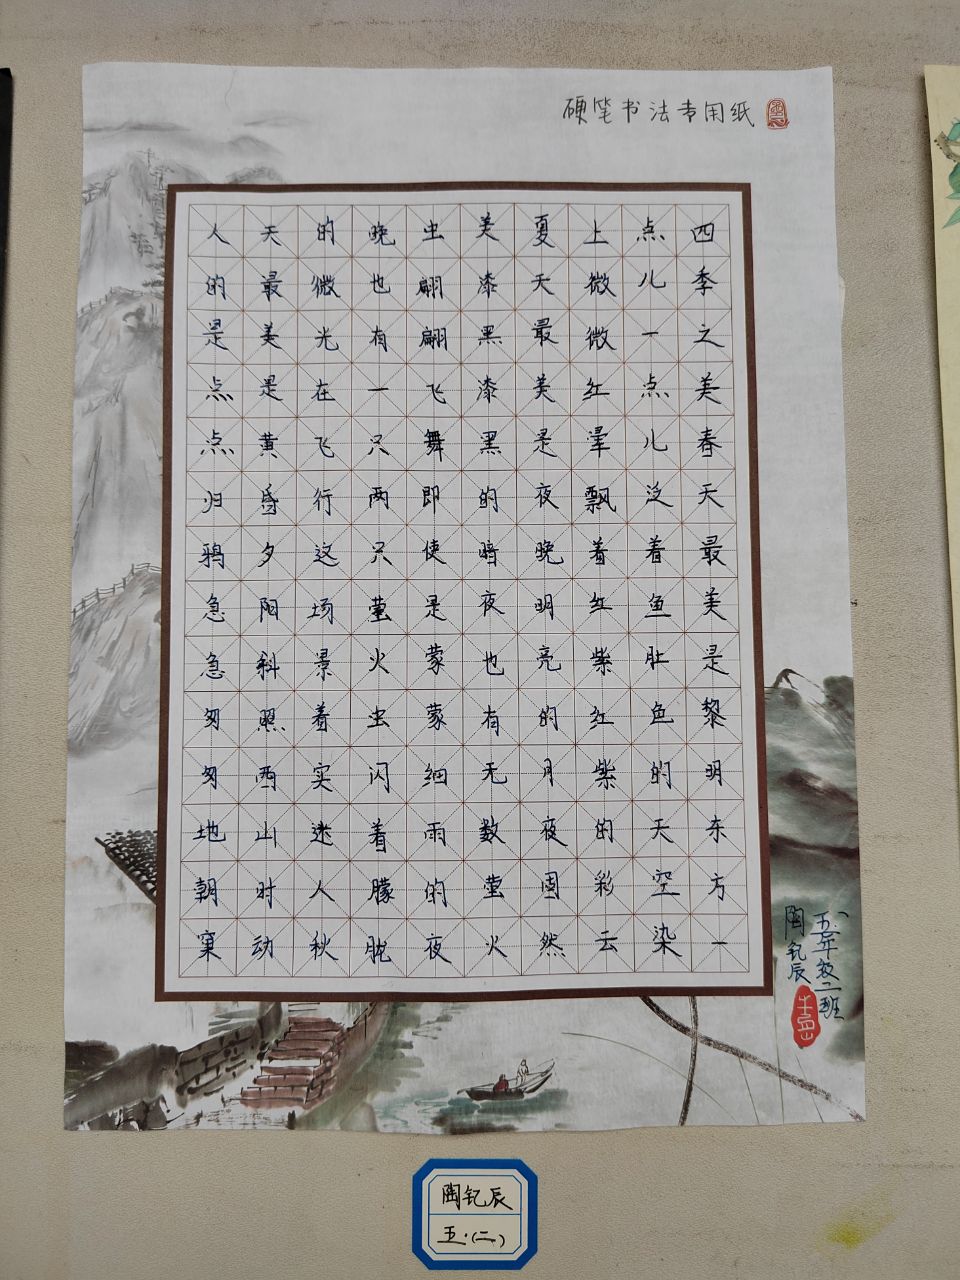 硬笔书法专用纸
四季之美春天最美是黎明东方一
点儿一点儿泛着鱼肚色的天空染
上微微红晕飘着红紫红紫的彩云
夏天最美是夜晚明亮的月夜固然
美漆黑漆黑的暗夜也有无数萤火
虫翩翩飞舞即使是蒙蒙细雨的夜
晚也有一只两只萤火虫闪着朦胧
的微光在飞行这场景着实迷人秋
天最美是黄昏夕阳科照西山时动
人的是点点归鸦急急匆匆地朝窠
五年级二班
陶钇辰
陶钇辰
五·(二)